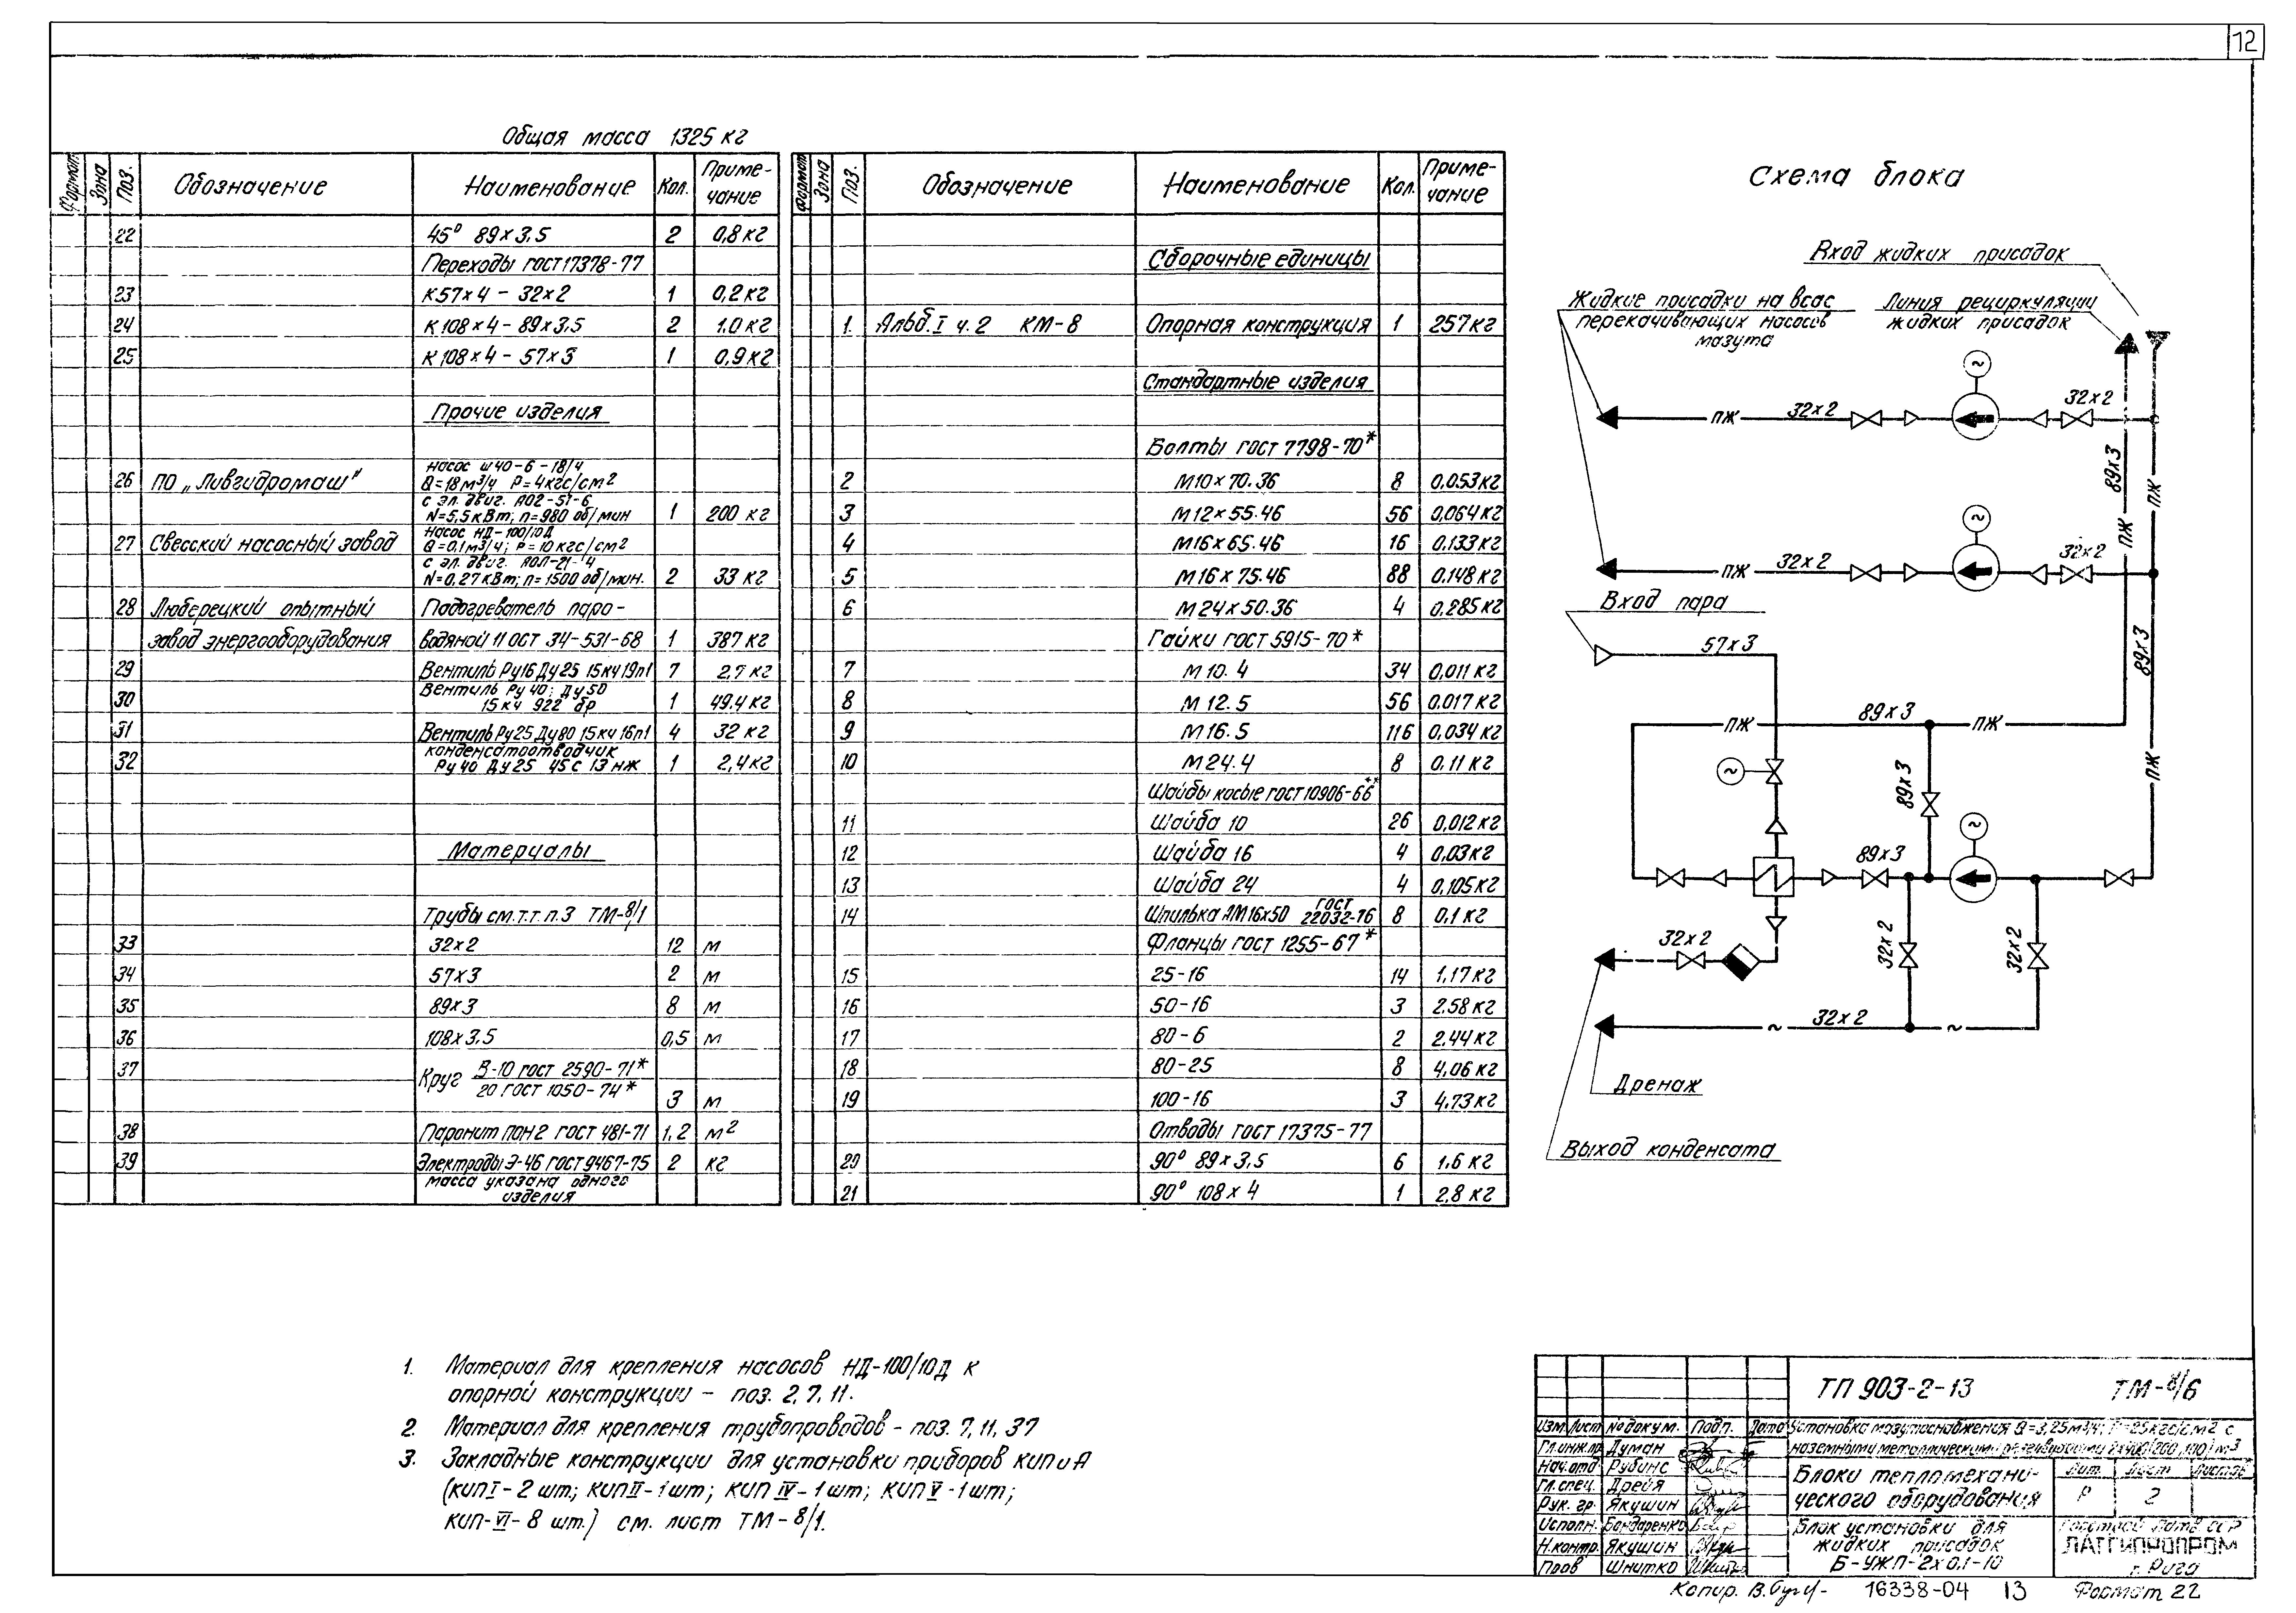 12
Общая масса 1325 кг
Формат. Зона Поз. Обозначение Наименование Кол. Приме-чание
22 45° 89х3,5 2 0,8 кг
Переходы ГОСТ 17378-77
23 К57х4 - 32х2 1 0,2 кг
24 К108х4 - 89х3,5 2 1,0 кг
25 К108х4 - 57х3 1 0,9 кг
Прочие изделия
насос Ш40-6-18/4
26 ПО „Ливгидромаш" Q=18м³/ч P=4кгс/см²
с эл. двиг. АО2-51-6
N=5,5кВт; n=980 об/мин 1 200 кг
насос НД-100/10Д
27 Свесский насосный завод Q=0,1м³/ч; P=10кгс/см²
с эл. двиг. АОЛ-21-4
N=0,27кВт; n=1500 об/мин. 2 33 кг
28 Люберецкий опытный Подогреватель паро-
завод энергооборудования водяной 11 ОСТ 34-531-68 1 387 кг
29 Вентиль Ру16 Ду25 15кч19п1 7 2,7 кг
Вентиль Ру 40; Ду50
30 15 кч 922 бр 1 49,4 кг
31 Вентиль Ру25 Ду80 15кч16п1 4 32 кг
конденсатоотводчик
32 Ру40 Ду25 45с13нж 1 2,4 кг
Материалы
Трубы см. т.т. п.3 ТМ-8/1
33 32х2 12 м
34 57х3 2 м
35 89х3 8 м
36 108х3,5 0,5 м
37 Круг В-10 ГОСТ 2590-71*
20 ГОСТ 1050-74* 3 м
38 Паронит ПОН2 ГОСТ 481-71 1,2 м²
39 Электроды Э-46 ГОСТ 9467-75 2 кг
масса указана одного
изделия
Формат Зона Поз. Обозначение Наименование Кол. Приме-чание
Сборочные единицы
1. Альб. I ч. 2 КМ-8 Опорная конструкция 1 257 кг
Стандартные изделия
Болты ГОСТ 7798-70*
2 М10х70.36 8 0,053 кг
3 М12х55.46 56 0,064 кг
4 М16х65.46 16 0,133 кг
5 М16х75.46 88 0,148 кг
6 М24х50.36 4 0,285 кг
Гайки ГОСТ 5915-70*
7 М10.4 34 0,011 кг
8 М12.5 56 0,017 кг
9 М16.5 116 0,034 кг
10 М24.4 8 0,11 кг
Шайбы косые ГОСТ 10906-66**
11 Шайба 10 26 0,012 кг
12 Шайба 16 4 0,03 кг
13 Шайба 24 4 0,105 кг
14 Шпилька АМ16х50 ГОСТ 22032-76 8 0,1 кг
Фланцы ГОСТ 1255-67*
15 25-16 14 1,17 кг
16 50-16 3 2,58 кг
17 80-6 2 2,44 кг
18 80-25 8 4,06 кг
19 100-16 3 4,73 кг
Отводы ГОСТ 17375-77
20 90° 89х3,5 6 1,6 кг
21 90° 108х4 1 2,8 кг
Схема блока
Вход жидких присадок
Жидкие присадки на всас
перекачивающих насосов
мазута
Линия рециркуляции
жидких присадок
~
ПЖ 32х2 32х2
89х3 ПЖ
~
ПЖ 32х2 32х2
ПЖ
Вход пара
57х3 89х3
ПЖ 89х3 ПЖ
~ 89х3 ПЖ
~
89х3
32х2 32х2 32х2
~ 32х2 ~
Дренаж
Выход конденсата
1. Материал для крепления насосов НД-100/10Д к
опорной конструкции - поз. 2, 7, 11.
2. Материал для крепления трубопроводов - поз. 7, 11, 37
3. Закладные конструкции для установки приборов КИПиА
(КИП I - 2 шт; КИП II - 1 шт; КИП IV - 1 шт; КИП V - 1 шт;
КИП-VI - 8 шт.) см. лист ТМ-8/1.
ТП 903-2-13 ТМ-8/6
Изм. Лист № докум. Подп. Дата
Установка мазутоснабжения Q=3,25м³/ч; P=25кгс/см² с
наземными металлическими резервуарами
Гл.инж.пр. Думан
Нач.отд. Рубинс
Гл.спец. Дрейя
Рук. гр. Якушин
Исполн. Бондаренко
Н.контр. Якушин
Пров Шнитко
Блоки теплохемани-
ческого оборудования
Лит. Лист Листов
Р 2
Блок установки для
жидких присадок
Б-УЖП-2х0,1-10
Госстрой Латв. ССР
ЛАТГИПРОПРОМ
г. Рига
Копир. 16338-04 13 Формат 22